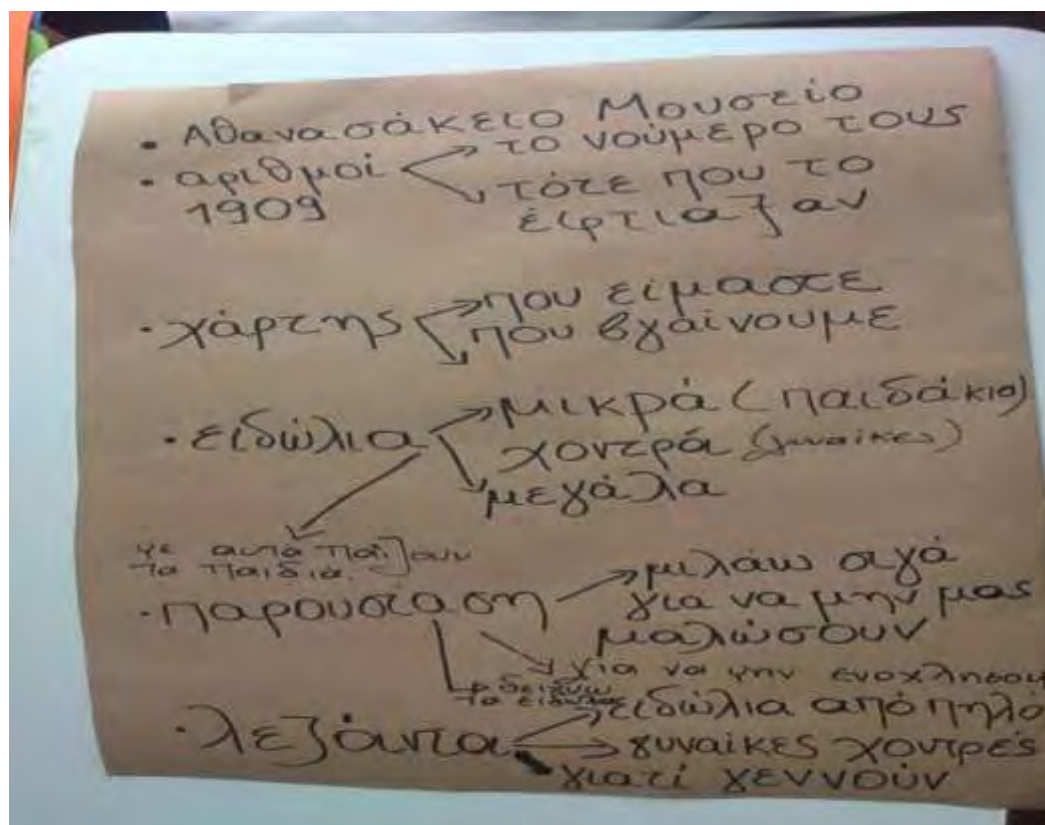 • Αθανασάκειο Μουσείο
• αριθμοί
1909
το νούμερο τους
τότε που το
έφτιαζαν
• χάρτης
που είμαστε
που βγαίνουμε
• ειδώλια
μικρά (παιδάκια)
χοντρά (γυναίκες)
μεγάλα
με αυτά παίζουν
τα παιδιά.
• παρουσίαση
μιλάω σιγά
για να μην μας
μαλώσουν
για να μην ενοχλήσου
δείχνω
τα ειδώλια
• λεζάντα
ειδώλια από πηλό
γυναίκες χοντρές
γιατί γεννούν